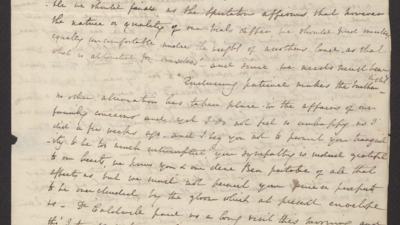 He is should find as the Spectator affirms that
the nature or quality of our trial differ, we should find
equally uncomfortable under the weight of another's load, as that
which is allotted to ourselves" and since we needs must bear
"Enduring patience makes the burthen light"
no other alteration has taken place in the affairs of our
foundry concerns and yet I do not feel so unhappy as I
did a few weeks ago and I beg you not to permit your tranquil
ity to be too much interrupted your sympathy is indeed grateful
to our hearts, we know you & our dear Ben partake of all that
affects us, but we must not permit your prospect
to be over clouded by the gloom which at present envelopes
us - Dr Caldwell paid us a long visit this morning and